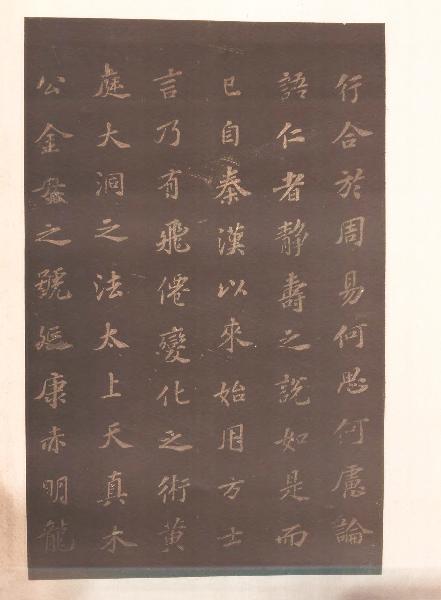 行合於周易何思何慮論
語仁者靜壽之說如是而
已自秦漢以來始用方士
言乃有飛僊變化之術黄
庭大洞之法太上天真木
公金母之號延康赤明龍